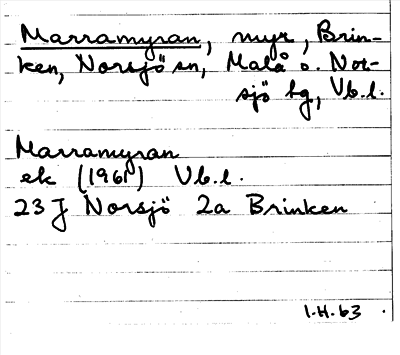 Marramyran, myr, Brin-
ken, Norsjö sn, Malå o. Nor-
sjö tg, Vb.l.
Marramyran
ek (1961) Vb.l.
23 J Norsjö 2a Brinken
1.H.63.